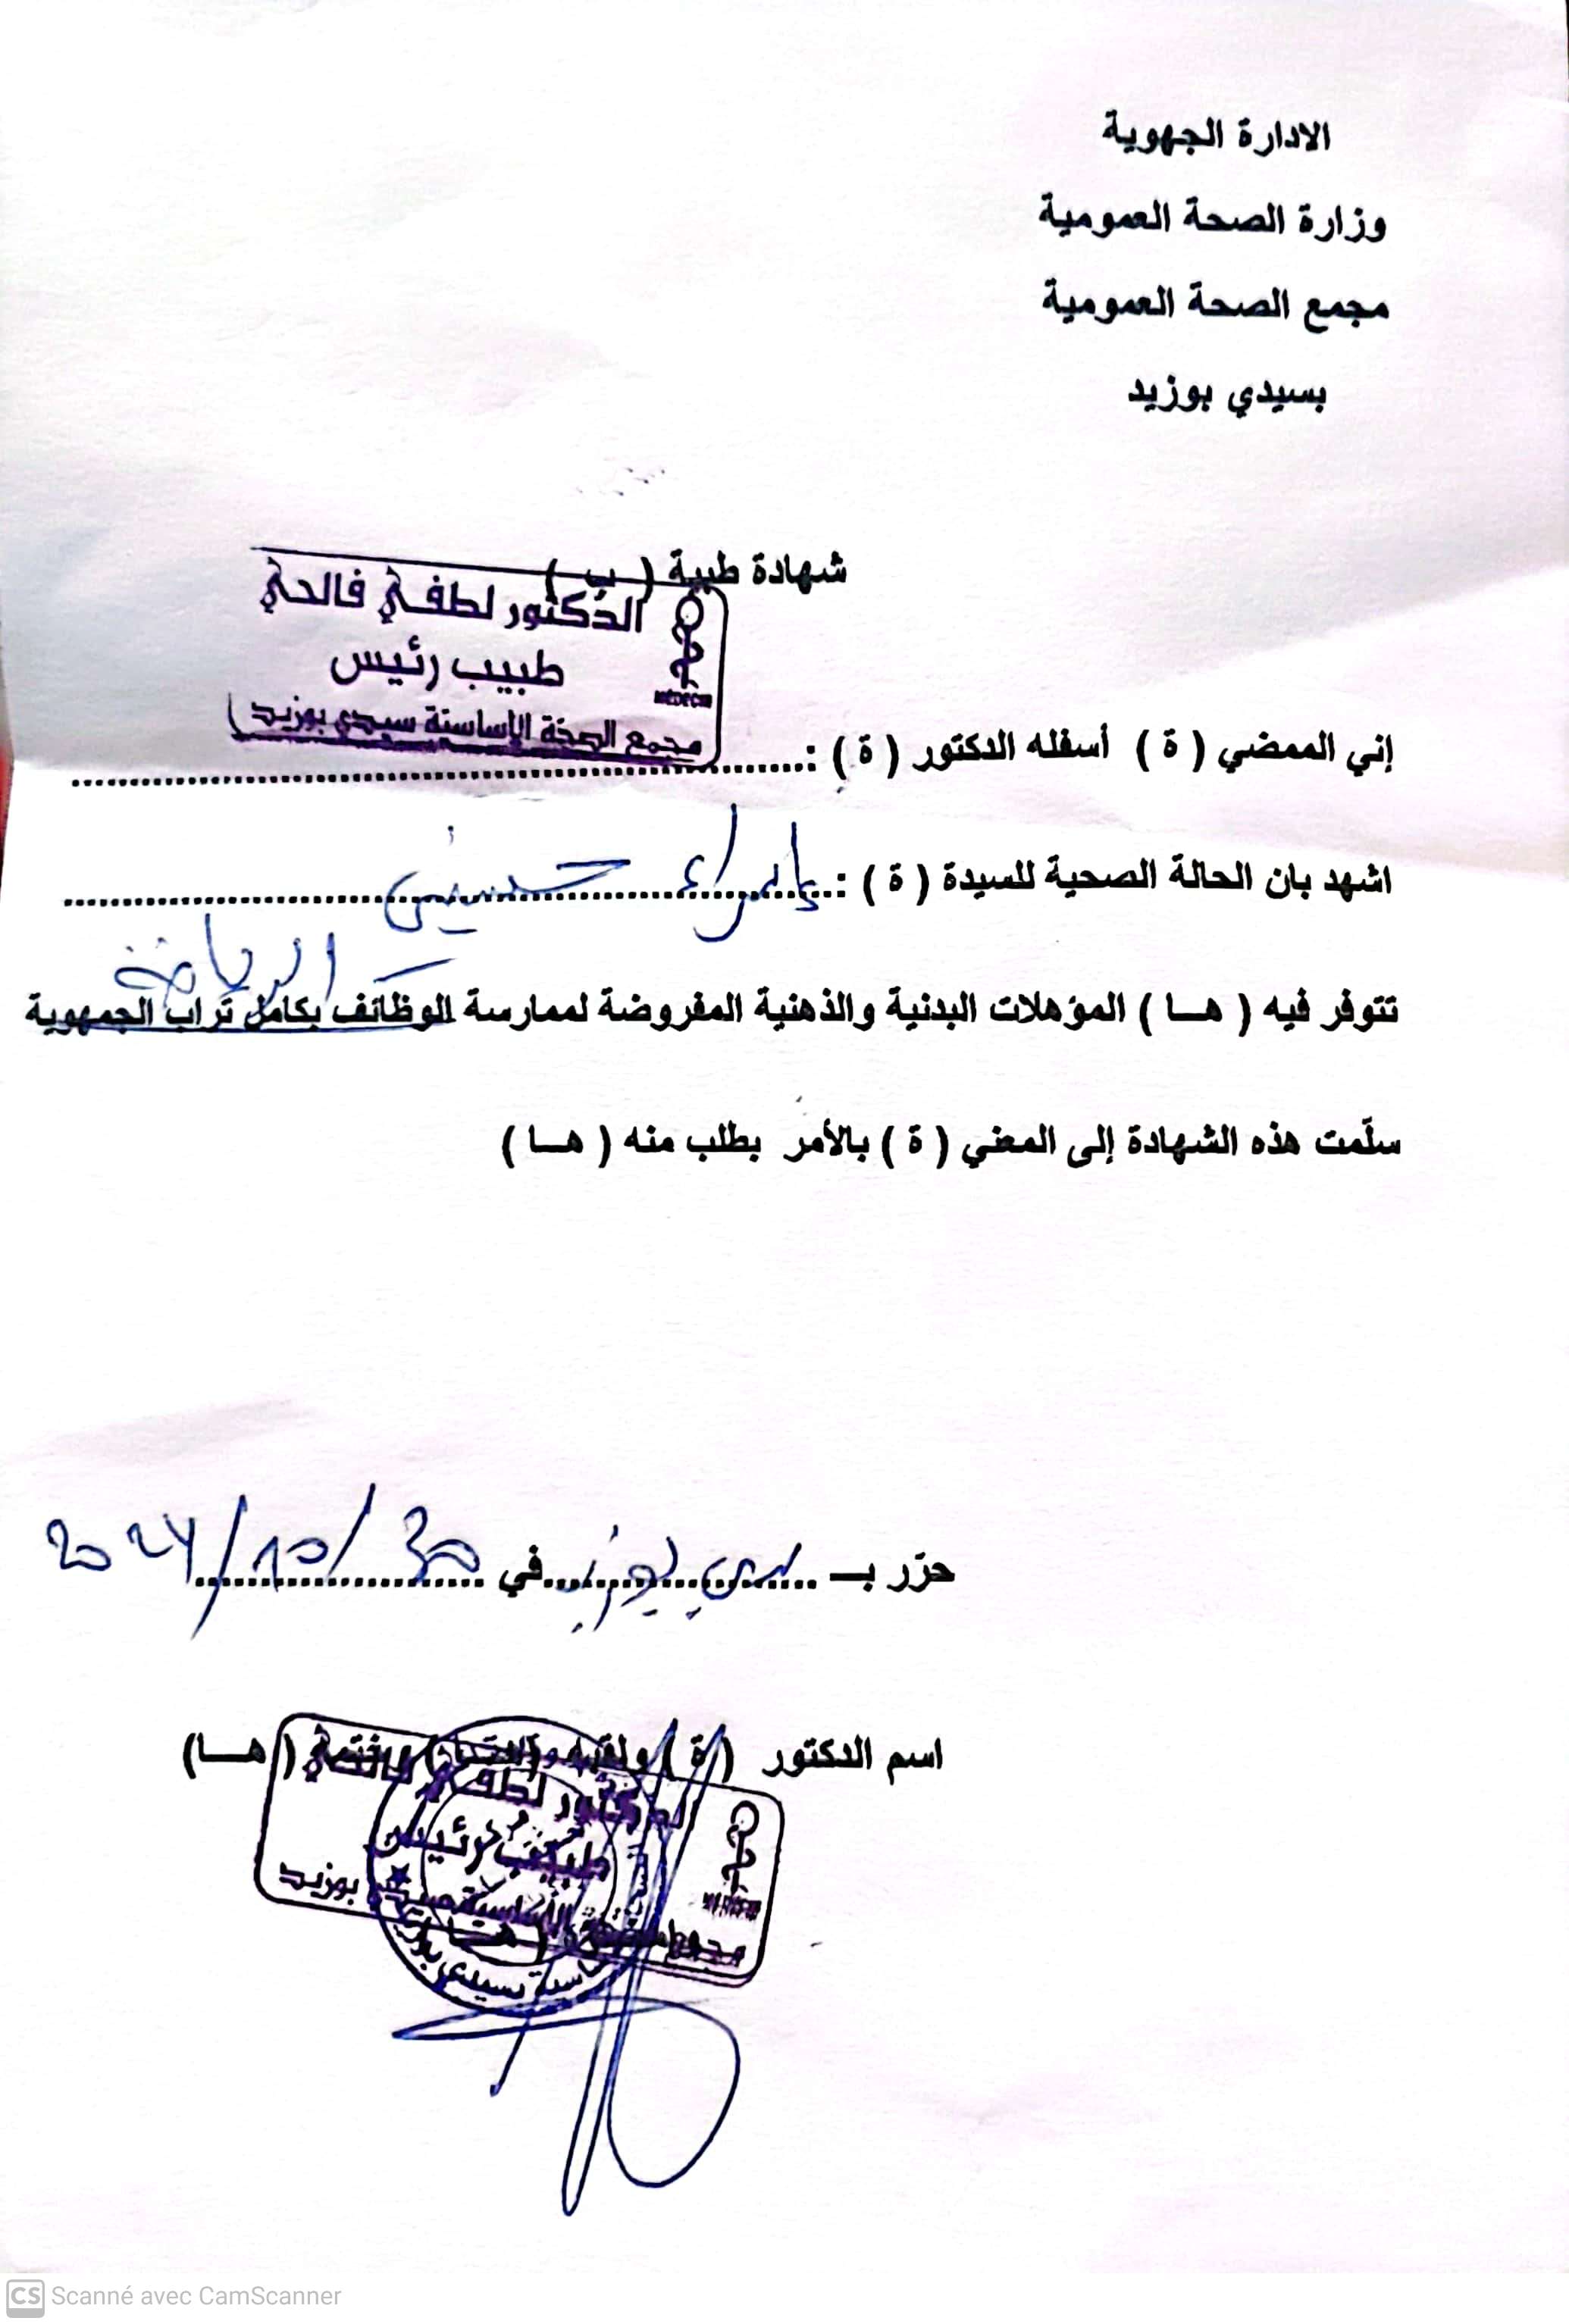 الادارة الجهوية
وزارة الصحة العمومية
مجمع الصحة العمومية
بسيدي بوزيد
شهادة طبية ( ب )
الدكتور لطفي فالحي
طبيب رئيس
MEDECIN
مجمع الصحة الأساسية سيدي بوزيد
إني الممضي ( ة ) أسفله الدكتور ( ة ) :
اشهد بان الحالة الصحية للسيدة ( ة ) : إسراء حسيني
الرياضة
تتوفر فيه ( هـــا ) المؤهلات البدنية والذهنية المفروضة لممارسة الوظائف بكامل تراب الجمهوية
سلّمت هذه الشهادة إلى المعني ( ة ) بالأمر بطلب منه ( هـــا )
حرّر بـــ سيدي بوزيد في 30/10/2024
اسم الدكتور ( ة ) ولقبه ( هـــا )
الدكتور لطفي
طبيب رئيس
الأساسية سيدي بوزيد
CS Scanné avec CamScanner